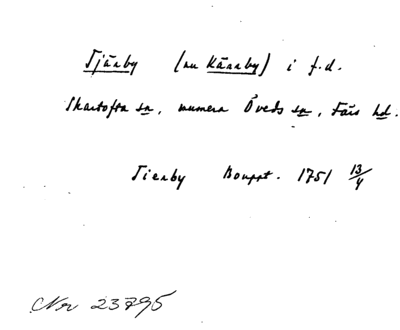 Tjärby (nu Kärrby) i f.d.
Skartofta sn, numera Öveds sn, Färs hd.
Tierby Bouppt. 1751 13/4
Nr 23795